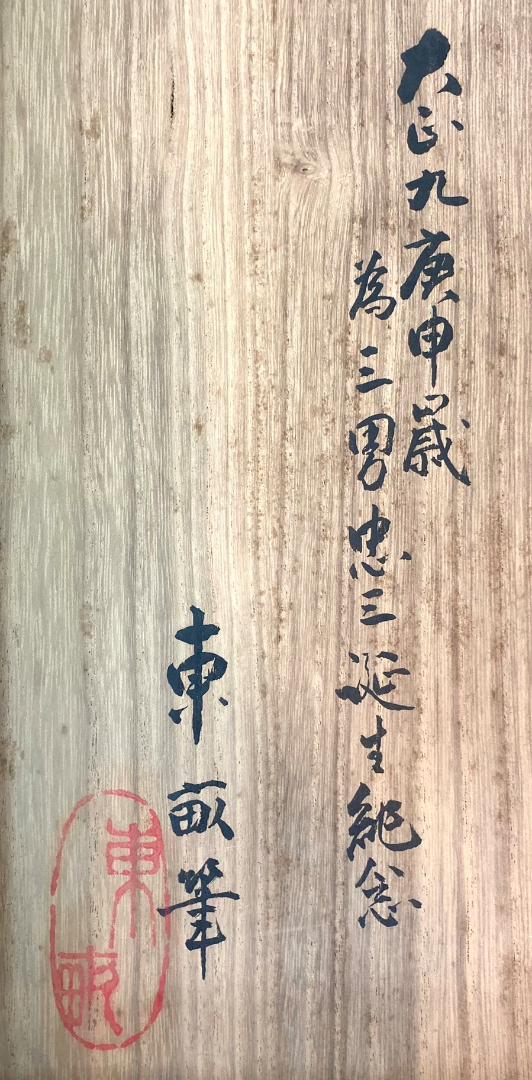 大正九庚申歳
為三男忠三誕生紀念
東畝筆
東畝